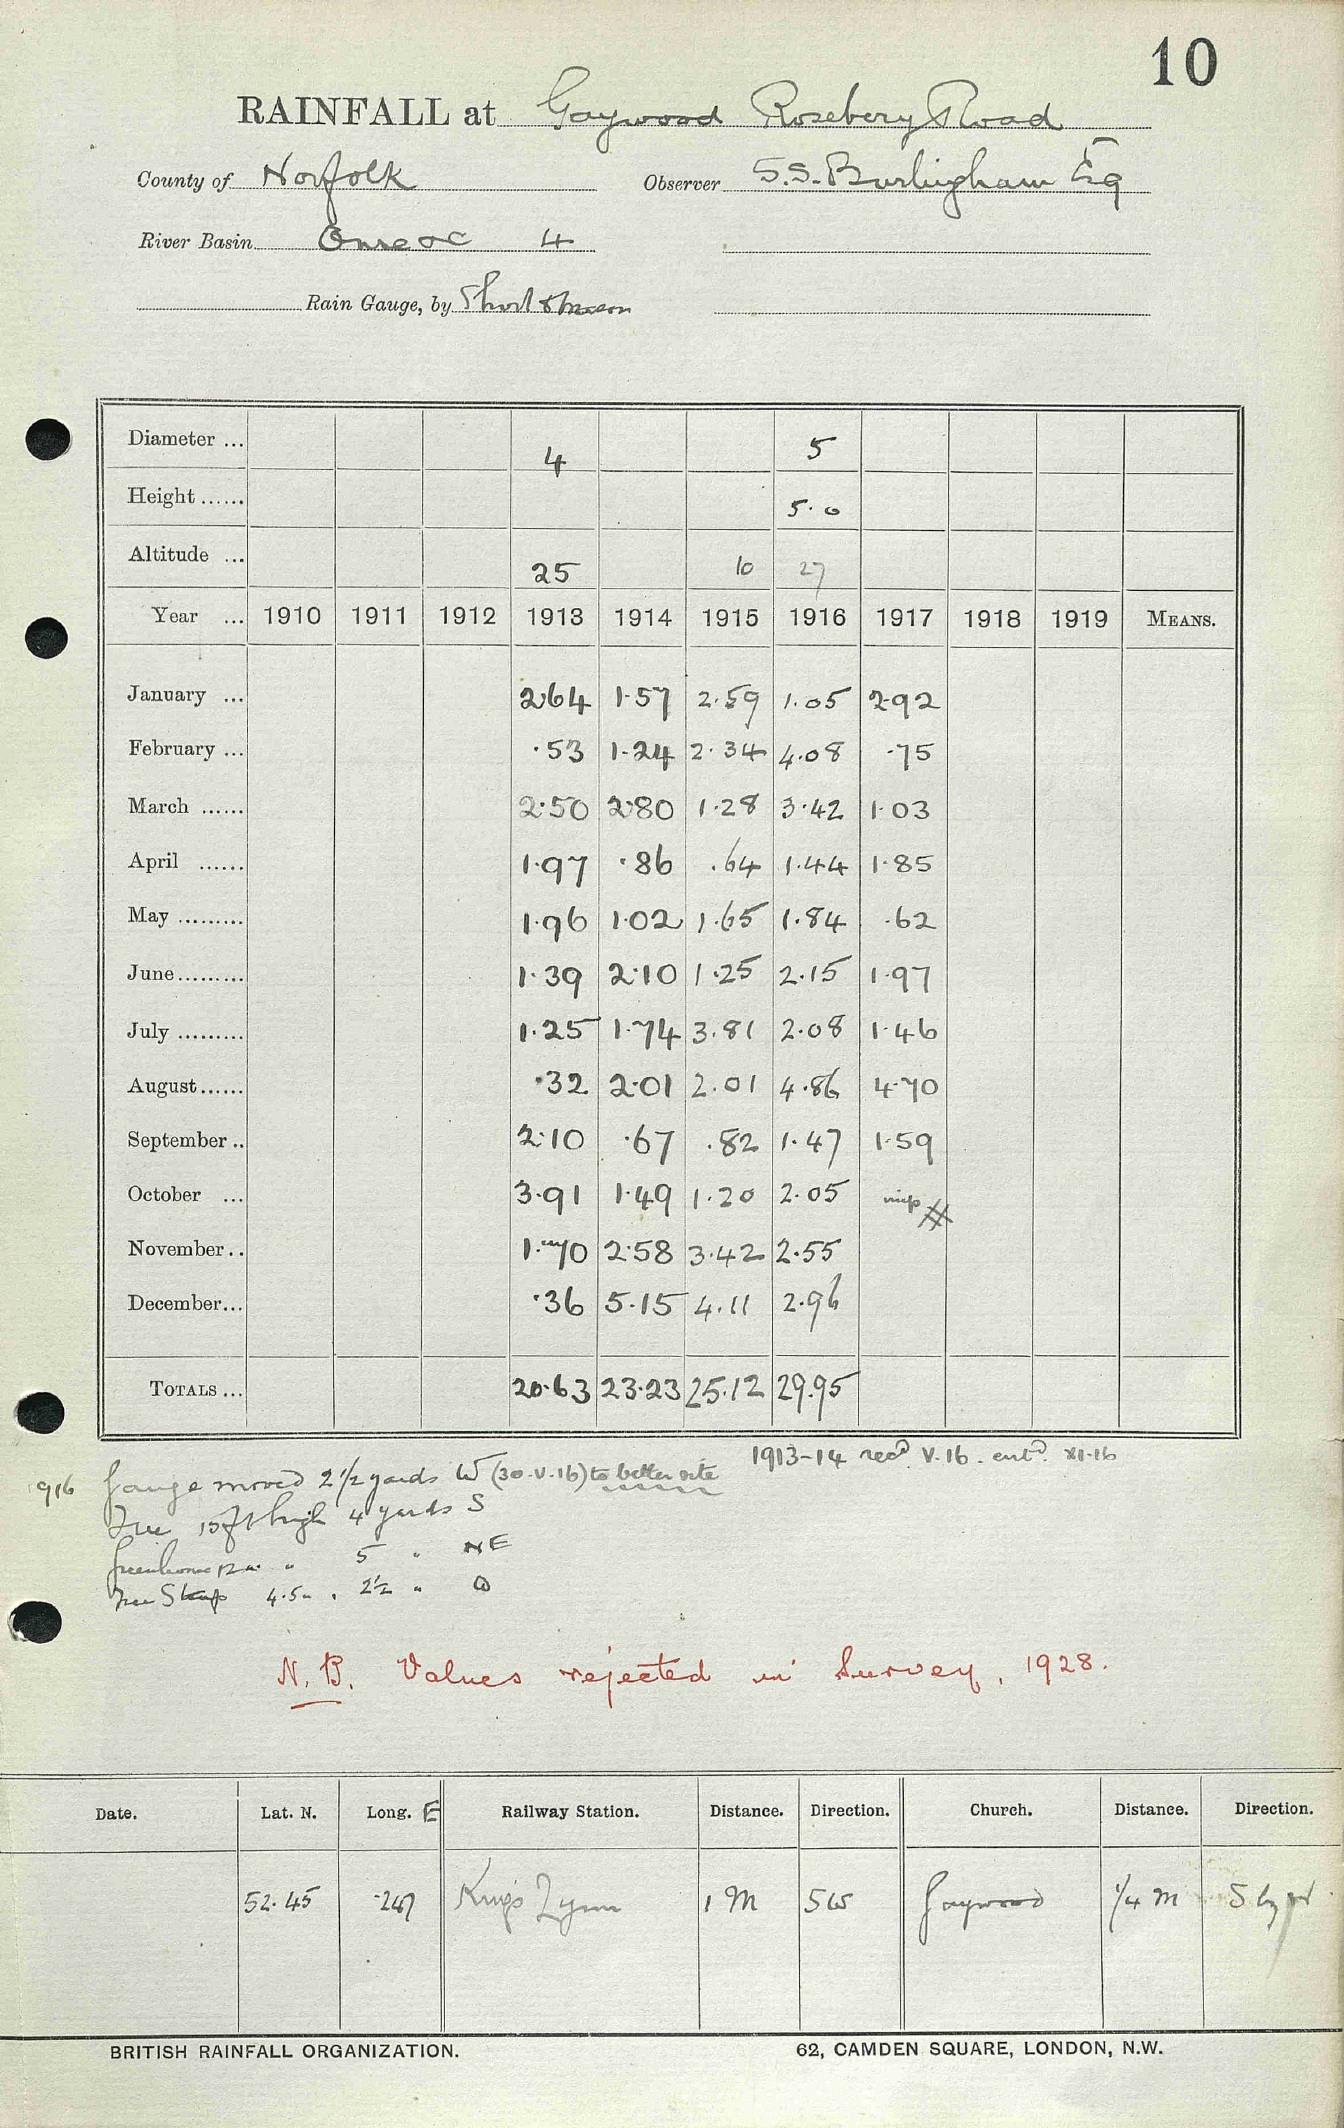 10
RAINFALL at Gaywood Rosebery Road
County of Norfolk Observer S.S. Burlingham Esq
River Basin Ouse &c 4
Rain Gauge, by Short & Mason
Diameter ... 4 5
Height ...... 5.0
Altitude ... 25 10 27
Year ... 1910 1911 1912 1913 1914 1915 1916 1917 1918 1919 MEANS.
January ... 2.64 1.57 2.59 1.05 2.92
February ... .53 1.24 2.34 4.08 .75
March ...... 2.50 2.80 1.28 3.42 1.03
April ...... 1.97 .86 .64 1.44 1.85
May ......... 1.96 1.02 1.65 1.84 .62
June ......... 1.39 2.10 1.25 2.15 1.97
July ......... 1.25 1.74 3.81 2.08 1.46
August ...... .32 2.01 2.01 4.86 4.70
September .. 2.10 .67 .82 1.47 1.59
October ... 3.91 1.49 1.20 2.05
November .. 1.70 2.58 3.42 2.55
December ... .36 5.15 4.11 2.96
TOTALS ... 20.63 23.23 25.12 29.95
1913-14 recd. V.16. entd. XI.16
1916 Gauge moved 2 1/2 yards W (30.V.16) to better site
Tree 15ft high 4 yards S
Greenhouse 12 " " 5 " NE
Tree Stump 4.5 " " 2 1/2 "
N.B. Values rejected in Survey, 1928.
Date. Lat. N. Long. E Railway Station. Distance. Direction. Church. Distance. Direction.
52.45 .247 Kings Lynn 1 M SW Gaywood 1/4 M S by W
BRITISH RAINFALL ORGANIZATION. 62, CAMDEN SQUARE, LONDON, N.W.